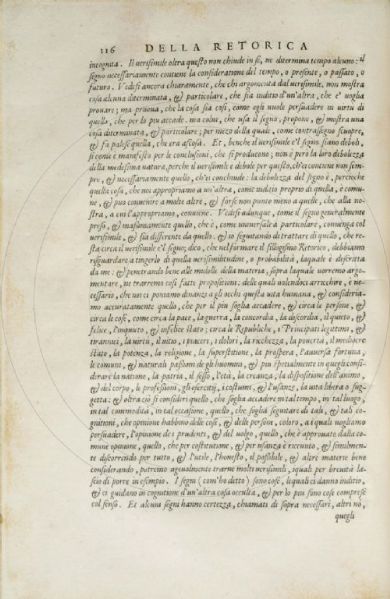 116 DELLA RETORICA
incognita. Il verisimile oltra questo non chiude in se, ne determina tempo alcuno: Il
segno necessariamente contiene la consideratione del tempo, o presente, o passato, o
futuro. Vedesi ancora chiaramente, che chi argomenta dal verisimile, non mostra
cosa alcuna determinata, & particolare, che sia indicio d'un'altra, che e' voglia
provare; ma pruova, che la cosa sia così, come egli vuole persuadere in virtù di
quello, che per lo piu accade. ma colui, che usa il segno, propone, & mostra una
cosa determinata, & particolare; per mezo della quale, come contrasegno scuopre,
& fa palese quella, che era ascosa. Et, benche il verisimile e'l segno siano deboli,
sì come è manifesto per le conclusioni, che si producono; non è però la loro debolezza
della medesima natura. perche il verisimile è debole per questo, ch'ei conviene non sem-
pre, & necessariamente quello, ch'ei conchiude: la debolezza del segno è, percioche
quella cosa, che noi appropriamo a un'altra, come indicio proprio di quella, è comu-
ne, & puo convenire a molte altre, & forse non punto meno a quelle, che alla no-
stra, a cui l'appropriamo, conviene. Vedesi adunque, come il segno generalmente
preso, & massimamente quello, che è, come universale a particolare, convenga col
verisimile, & sia differente da quello. io seguitando di trattare di quello, che re-
sta circa il verisimile e'l segno; dico, che nel formare il sillogismo Retorico, debbiamo
risguardare a tingerlo di quella verisimilitudine, o probabilità, laquale è descritta
da me: & penetrando bene alle midolle della materia, sopra laquale vorremo argo-
mentare, ne trarremo così fatti propositioni; delle quali volendoci arricchire, è ne-
cessario, che noi ci poniamo dinanzi a gli occhi questa vita humana, & consideria-
mo accuratamente quello, che per il piu soglia accadere, & circa le persone, &
circa le cose, come circa la pace, la guerra, la concordia, la discordia, il quieto, &
felice, l'inquieto, & infelice stato; circa le Republiche, i Principati legittimi, &
tirannici, la virtù, il vitio, i piaceri, i dolori, la ricchezza, la povertà, il mediocre
stato, la potenza, la religione, la superstitione, la prospera, l'avversa fortuna,
le communi, & naturali passioni de gli huomini, & piu spetialmente in quegli consi-
derare la natione, la patria, il sesso, l'età, la creanza, la dispositione dell'animo,
& del corpo, le professioni, gli esercitij, i costumi, & l'usanze, la vita libera o sug-
getta: & oltra ciò si consideri quello, che soglia accadere in tal tempo, in tal luogo,
in tal commodità, in tal occasione, quello, che soglia seguitare di tali, & tali co-
gnitioni, che opinione habbino delle cose, & delle persone, coloro, a i quali vogliamo
persuadere, l'opinione de i prudenti, & del volgo, quello, che è approvato dalla co-
mune openione, quello, che per costitutione, & per usanza è ricevuto, & similmen-
te discorrendo per tutto, & l'utile, l'honesto, il possibile, & altre materie bene
considerando, potremo agevolmente trarne molti verisimili, i quali per brevità la-
scio di porre in esempio. I segni (com'ho detto) sono cose, lequali ci danno indicio,
& ci guidano in cognitione d'un'altra cosa occulta, & per lo piu sono cose comprese
col senso. Et alcuni segni hanno certezza, chiamati di sopra necessari, altri no,
quegli